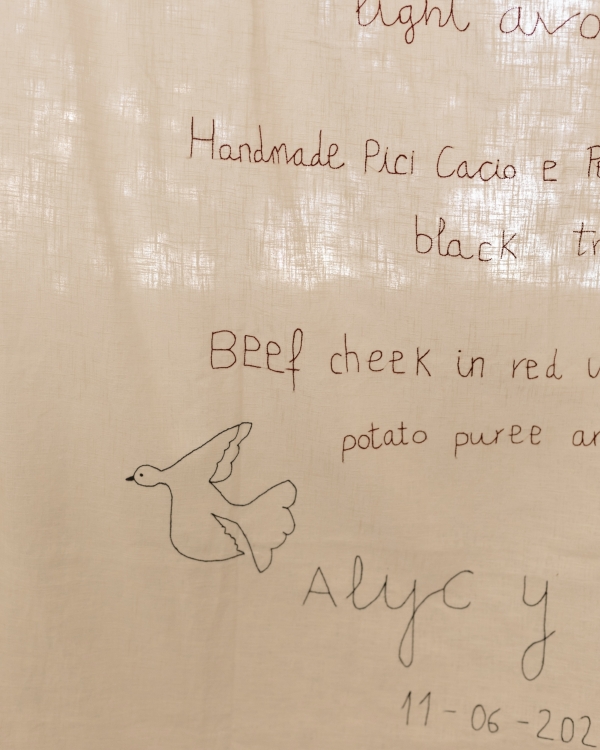 light avo
Handmade Pici Cacio e P
black tr
Beef cheek in red w
potato puree an
Alyc y
11-06-202